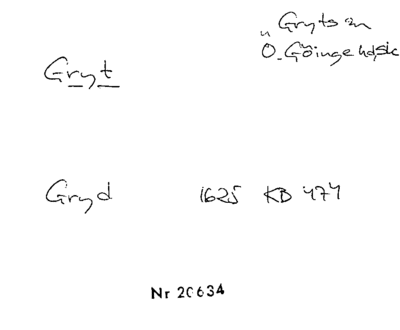 Gryts sn
Ö. Göinge hd, sk
Gryt
Gryd 1625 KB 474
Nr 20634